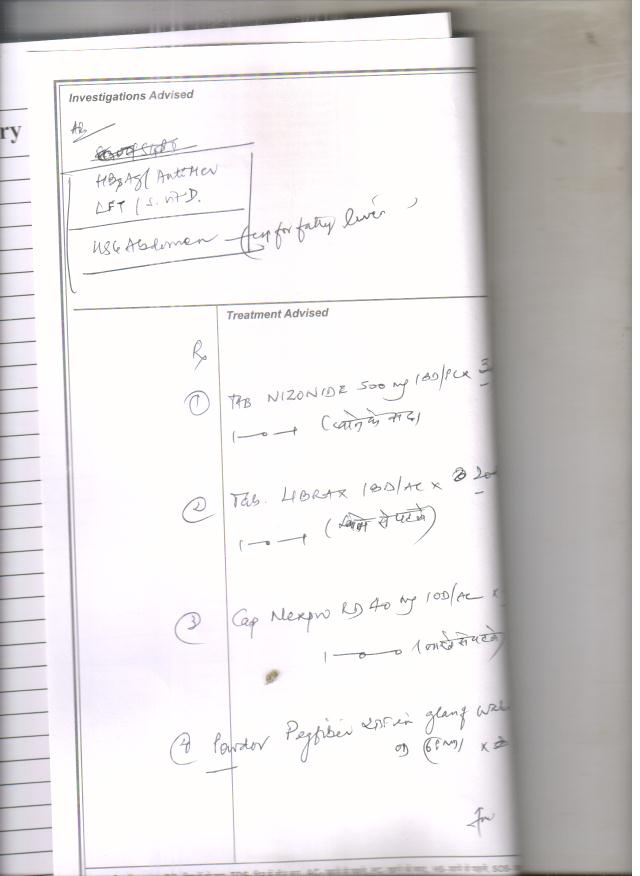 ry
Investigations Advised
HBsAg / Anti HCV
LFT / S. Vit D.
USG Abdomen for fatty liver
Treatment Advised
Rx
① TAB NIZONIDE 500 mg 1BD/PC x 3
1—o—1 (खाने के बाद)
② Tab. LIBRAX 1BD/AC x 20
1—o—1 (खाने से पहले)
③ Cap Nexpro RD 40 mg 1OD/AC x
1—o—o (नाश्ते से पहले)
④ Powder Pegfiber in glass
OD (6PM) x